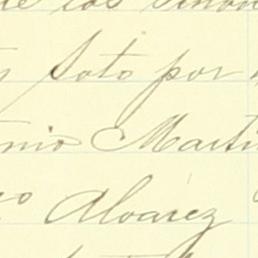 de los
y Soto por
onio Martin
co Alvarez